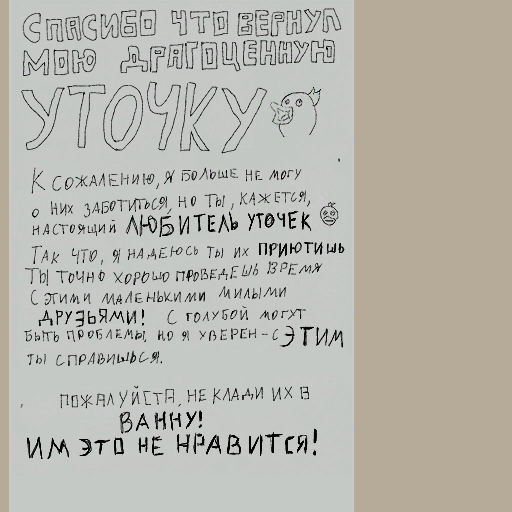 СПАСИБО ЧТО ВЕРНУЛ
МОЮ ДРАГОЦЕННУЮ
УТОЧКУ
К СОЖАЛЕНИЮ, Я БОЛЬШЕ НЕ МОГУ
О НИХ ЗАБОТИТЬСЯ, НО ТЫ, КАЖЕТСЯ,
НАСТОЯЩИЙ ЛЮБИТЕЛЬ УТОЧЕК
ТАК ЧТО, Я НАДЕЮСЬ ТЫ ИХ ПРИЮТИШЬ
ТЫ ТОЧНО ХОРОШО ПРОВЕДЕШЬ ВРЕМЯ
С ЭТИМИ МАЛЕНЬКИМИ МИЛЫМИ
ДРУЗЬЯМИ! С ГОЛУБОЙ МОГУТ
БЫТЬ ПРОБЛЕМЫ, НО Я УВЕРЕН - С ЭТИМ
ТЫ СПРАВИШЬСЯ.
ПОЖАЛУЙСТА, НЕ КЛАДИ ИХ В
ВАННУ!
ИМ ЭТО НЕ НРАВИТСЯ!